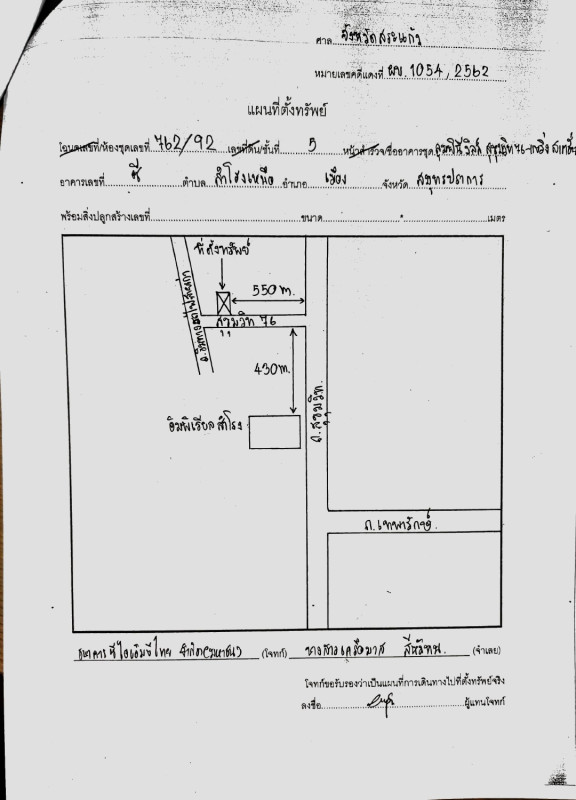 ศาล จังหวัดสระแก้ว
หมายเลขคดีแดงที่ ผบ. 1054 / 2562
แผนที่ตั้งทรัพย์
โฉนดเลขที่/ห้องชุดเลขที่ 762/92 เลขที่ดิน/ชั้นที่ 5 หน้าสำรวจ/ชื่ออาคารชุด
อาคารเลขที่ ซี ตำบล สำโรงเหนือ อำเภอ เมือง จังหวัด สมุทรปราการ
พร้อมสิ่งปลูกสร้างเลขที่ ขนาด * เมตร
ที่ตั้งทรัพย์
550 m.
สุขุมวิท 76
430 m.
อิมพีเรียลสำโรง
ถ.สุขุมวิท
ถ.เทพารักษ์
ธนาคารซีไอเอ็มบีไทย จำกัด(มหาชน) (โจทก์) นางสาวเครือมาส (จำเลย)
โจทก์ขอรับรองว่าเป็นแผนที่การเดินทางไปที่ตั้งทรัพย์จริง
ลงชื่อ ผู้แทนโจทก์